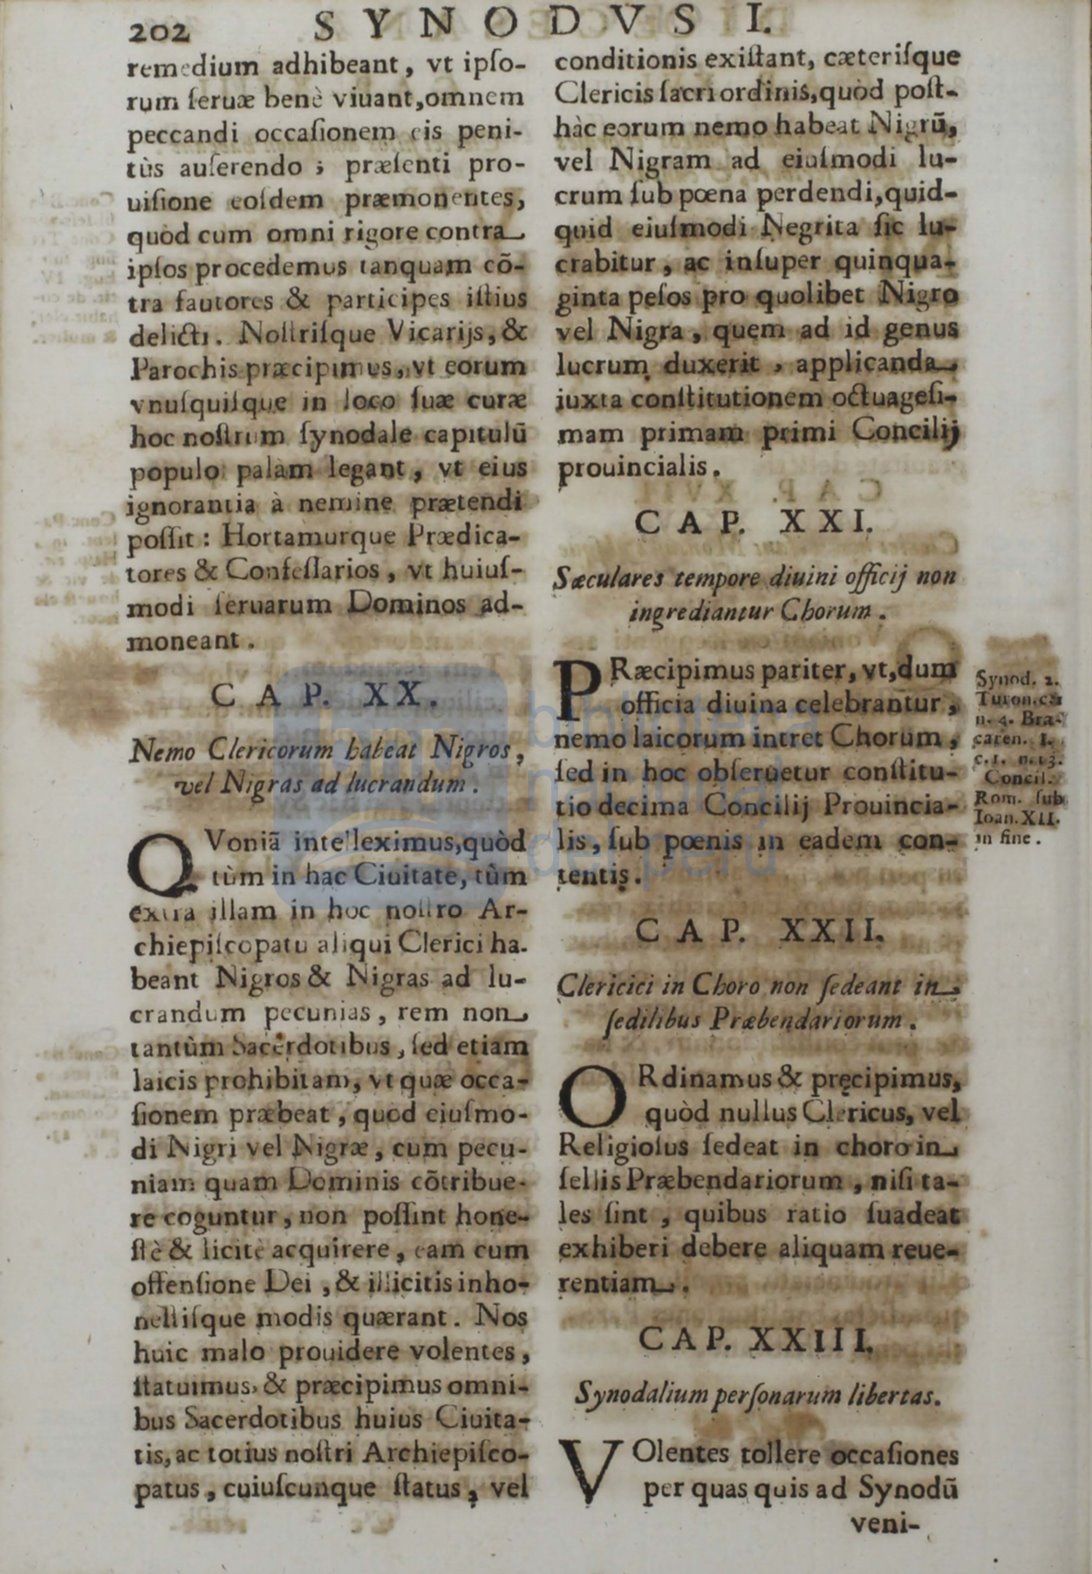 202 SYNODVS I.
remedium adhibeant, vt ipſo-
rum ſeruæ benè viuant,omnem
peccandi occaſionem eis peni-
tùs auferendo ; præſenti pro-
uiſione eoſdem præmonentes,
quòd cum omni rigore contra
ipſos procedemus tanquam cõ-
tra fautores & participes iſtius
delicti. Noſtriſque Vicarijs, &
Parochis præcipimus, vt eorum
vnuſquiſque in loco ſuæ curæ
hoc noſtrum ſynodale capitulũ
populo palàm legant, vt eius
ignorantia à nemine prætendi
poſſit : Hortamurque Prædica-
tores & Confeſſarios, vt huiuſ-
modi ſeruarum Dominos ad-
moneant.
CAP. XX.
Nemo Clericorum habeat Nigros,
vel Nigras ad lucrandum.
QVoniã intelleximus,quòd
tùm in hac Ciuitate, tùm
extra illam in hoc noſtro Ar-
chiepiſcopatu aliqui Clerici ha-
beant Nigros & Nigras ad lu-
crandum pecunias, rem non
tantùm Sacerdotibus, ſed etiam
laicis prohibitam, vt quæ occa-
ſionem præbeat, quod eiuſmo-
di Nigri vel Nigræ, cum pecu-
niam quam Dominis cõtribue-
re coguntur, non poſſint hone-
ſtè & licitè acquirere, eam cum
offenſione Dei, & illicitis inho-
neſtiſque modis quærant. Nos
huic malo prouidere volentes,
ſtatuimus, & præcipimus omni-
bus Sacerdotibus huius Ciuita-
tis, ac totius noſtri Archiepiſco-
patus, cuiuſcunque ſtatus, vel
conditionis exiſtant, cæteriſque
Clericis ſacri ordinis, quòd poſt-
hàc eorum nemo habeat Nigrũ,
vel Nigram ad eiuſmodi lu-
crum ſub pœna perdendi, quid-
quid eiuſmodi Negrita ſic lu-
crabitur, ac inſuper quinqua-
ginta peſos pro quolibet Nigro
vel Nigra, quem ad id genus
lucrum duxerit, applicanda
iuxta conſtitutionem octuageſi-
mam primam primi Concilij
prouincialis.
CAP. XXI.
Sæculares tempore diuini officij non
ingrediantur Chorum.
PRæcipimus pariter, vt, dum
officia diuina celebrantur,
nemo laicorum intret Chorum,
ſed in hoc obſeruetur conſtitu-
tio decima Concilij Prouincia-
lis, ſub pœnis in eadem con-
tentis.
Synod. 2.
Turon.ca
n. 4. Bra-
caren. 1.
c.1. n.13.
Concil.
Rom. ſub
Ioan.XII.
in fine.
CAP. XXII.
Clericici in Choro non ſedeant in
ſedilibus Præbendariorum.
ORdinamus & pręcipimus,
quòd nullus Clericus, vel
Religioſus ſedeat in choro in
ſellis Præbendariorum, niſi ta-
les ſint, quibus ratio ſuadeat
exhiberi debere aliquam reue-
rentiam.
CAP. XXIII.
Synodalium perſonarum libertas.
VOlentes tollere occaſiones
per quas quis ad Synodũ
veni-
biblioteca
nacional
del perú